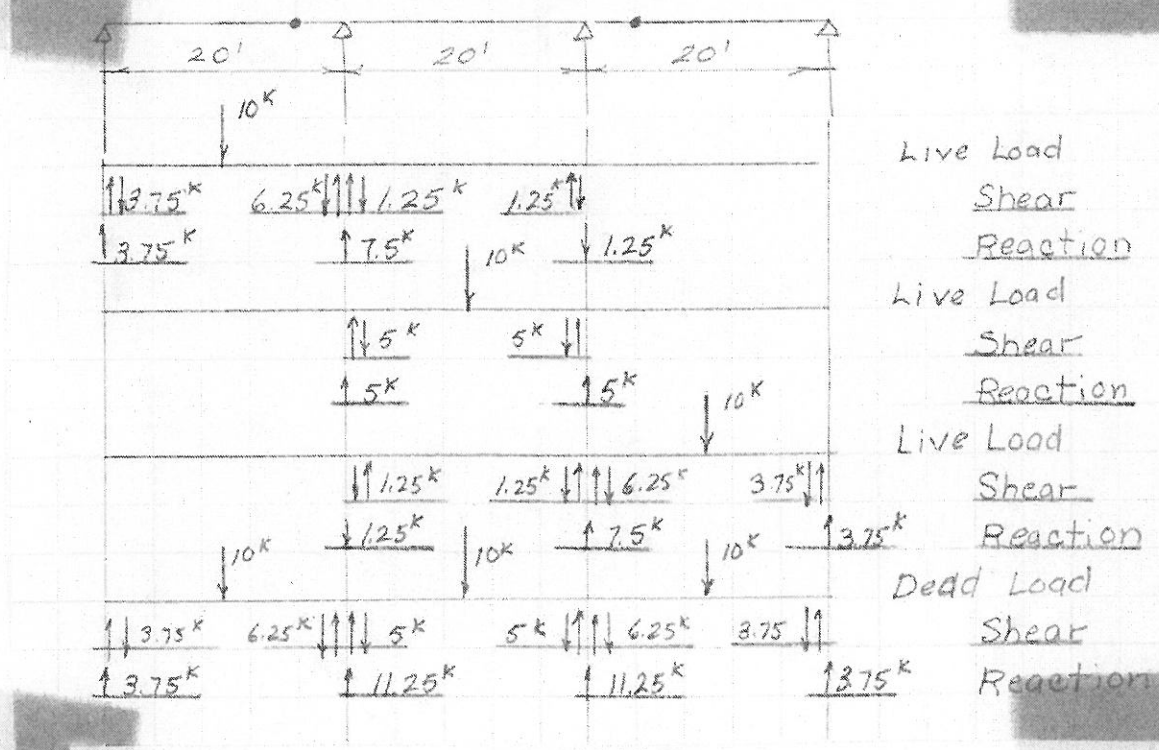 20' 20' 20'
10K
Live Load
3.75K 6.25K 1.25K 1.25K Shear
3.75K 7.5K 1.25K Reaction
10K
Live Load
5K 5K Shear
5K 5K Reaction
10K
Live Load
1.25K 1.25K 6.25K 3.75K Shear
1.25K 7.5K 3.75K Reaction
10K 10K 10K
Dead Load
3.75K 6.25K 5K 5K 6.25K 3.75 Shear
3.75K 11.25K 11.25K 3.75K Reaction